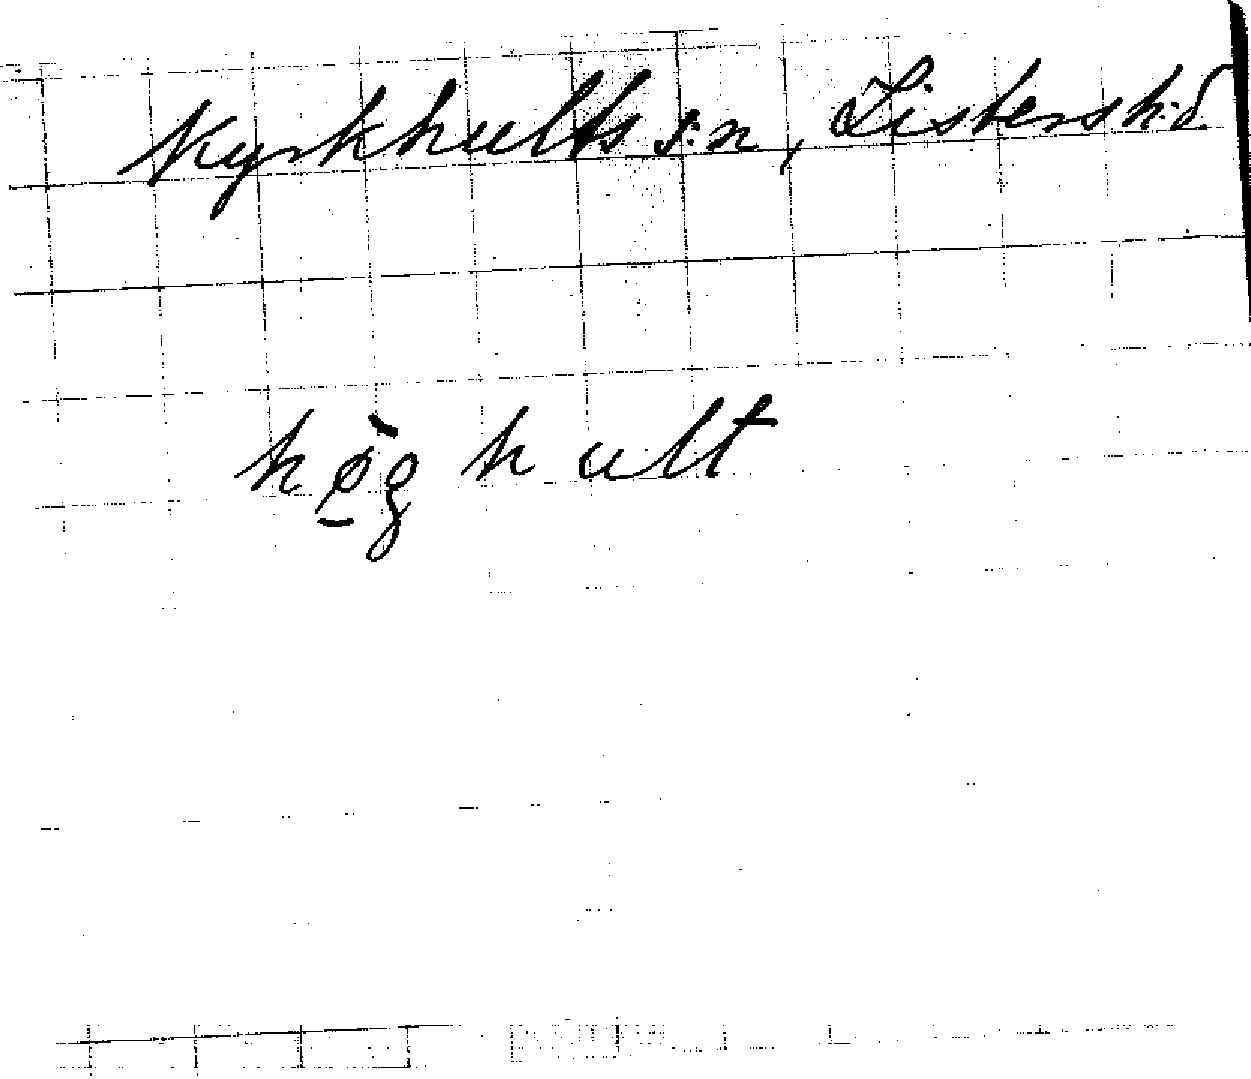 Kyrkhults s:n, Listers h:d.
hø̱̀g hult